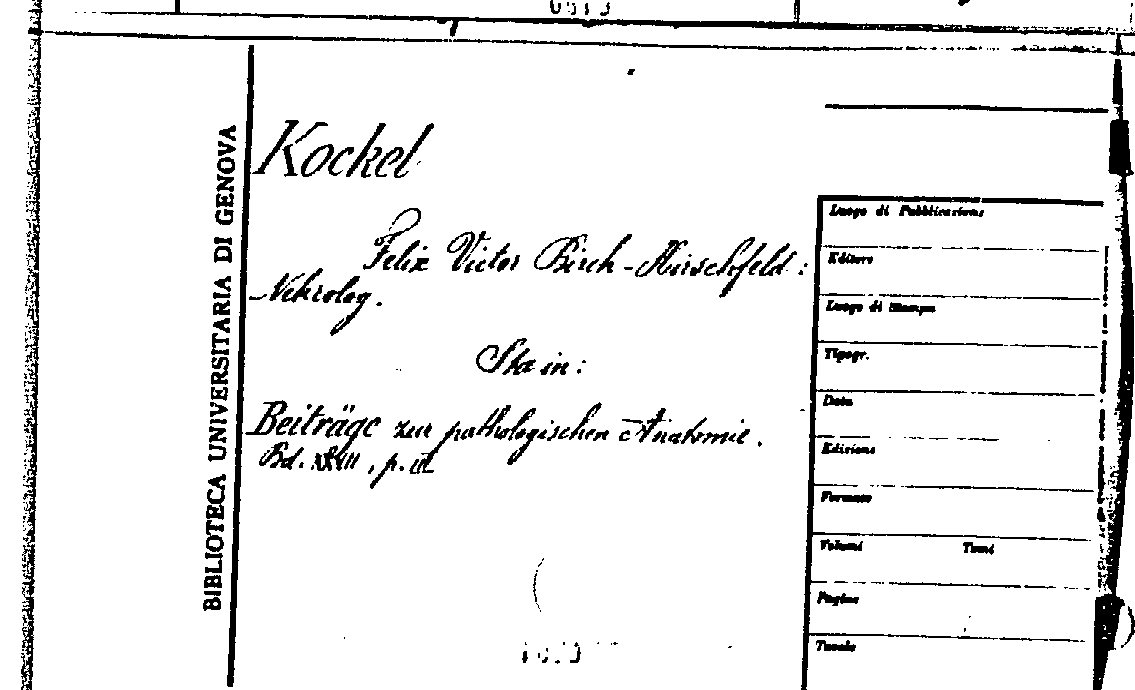 BIBLIOTECA UNIVERSITARIA DI GENOVA
Kockel
Felix Victor Birch-Hirschfeld:
Nekrolog.
Sta in:
Beiträge zur pathologischen Anatomie.
Bd. p.
Luogo di Pubblicazione
Editore
Luogo di Stampa
Tipogr.
Data
Edizione
Formato
Volumi Tomi
Pagine
Tavole